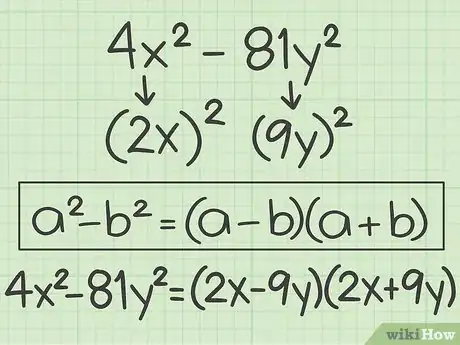 4x² − 81y²
↓ ↓
(2x)² (9y)²
a²−b² = (a−b)(a+b)
4x²−81y²=(2x−9y)(2x+9y)
wikiHow